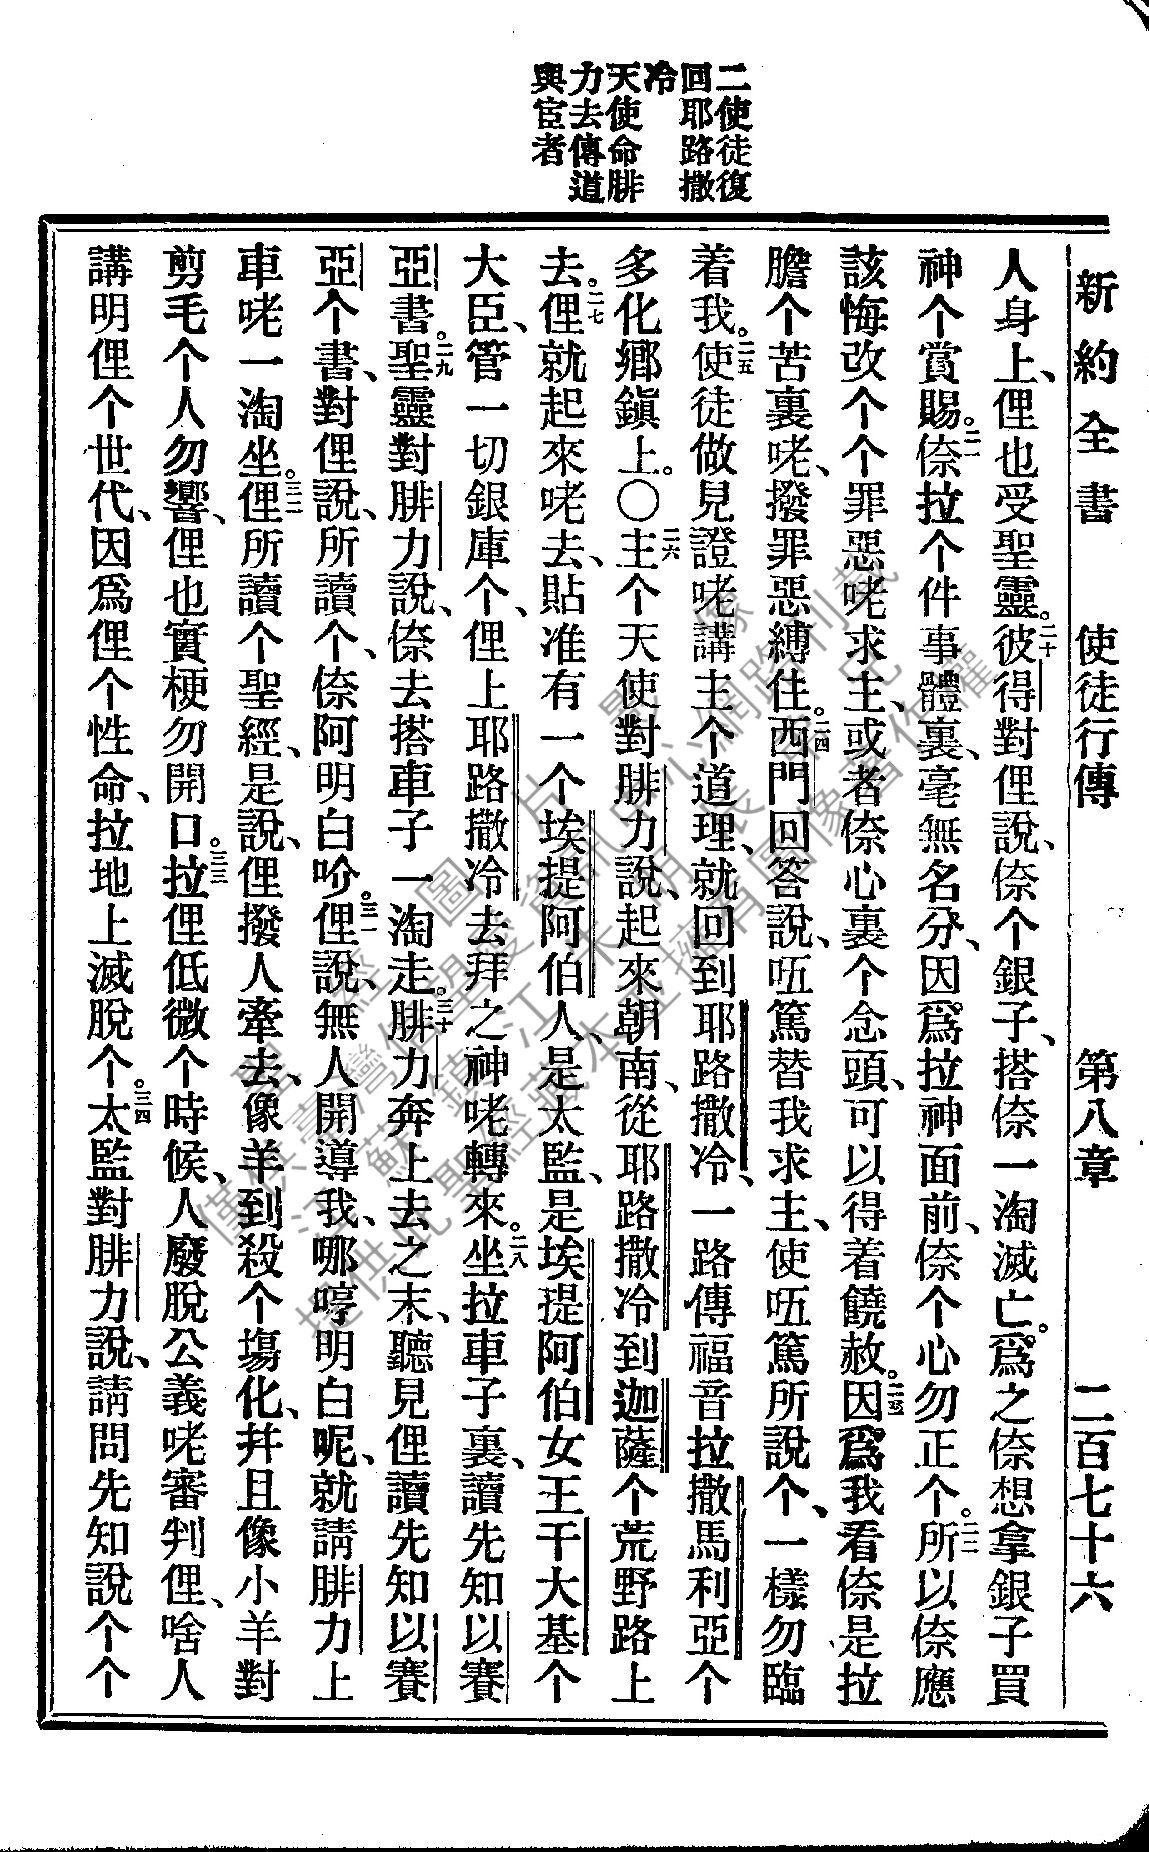 二使徒復
回耶路撒
冷
天使命腓
力去傳道
與宦者
新約全書 使徒行傳 第八章 二百七十六
人身上、俚也受聖靈。二十彼得對俚說、倷个銀子、搭倷一淘滅亡。爲之倷想拿銀子買
神个賞賜。二一倷拉个件事體裏、毫無名分、因爲拉神面前、倷个心勿正个。二二所以倷應
該悔改个个罪惡咾求主、或者倷心裏个念頭、可以得着饒赦。二三因爲我看倷是拉
膽个苦裏咾、撥罪惡縛住。二四西門回答說、㕶篤替我求主、使㕶篤所說个、一樣勿臨
着我。二五使徒做見證咾講主个道理、就回到耶路撒冷、一路傳福音拉撒馬利亞个
多化鄉鎭上。〇二六主个天使對腓力說、起來朝南、從耶路撒冷到迦薩个荒野路上
去。二七俚就起來咾去、貼准有一个埃提阿伯人、是太監、是埃提阿伯女王干大基个
大臣、管一切銀庫个、俚上耶路撒冷去拜之神咾轉來。二八坐拉車子裏、讀先知以賽
亞書。二九聖靈對腓力說、倷去搭車子一淘走。三十腓力奔上去之末、聽見俚讀先知以賽
亞个書、對俚說、所讀个、倷阿明白吤。三一俚說、無人開導我、哪哼明白呢、就請腓力上
車咾一淘坐。三二俚所讀个聖經、是說、俚撥人牽去、像羊到殺个塲化、幷且像小羊對
剪毛个人勿響、俚也實梗勿開口。三三拉俚低微个時候、人廢脫公義咾審判俚、啥人
講明俚个世代、因爲俚个性命、拉地上滅脫个。三四太監對腓力說、請問先知說个个